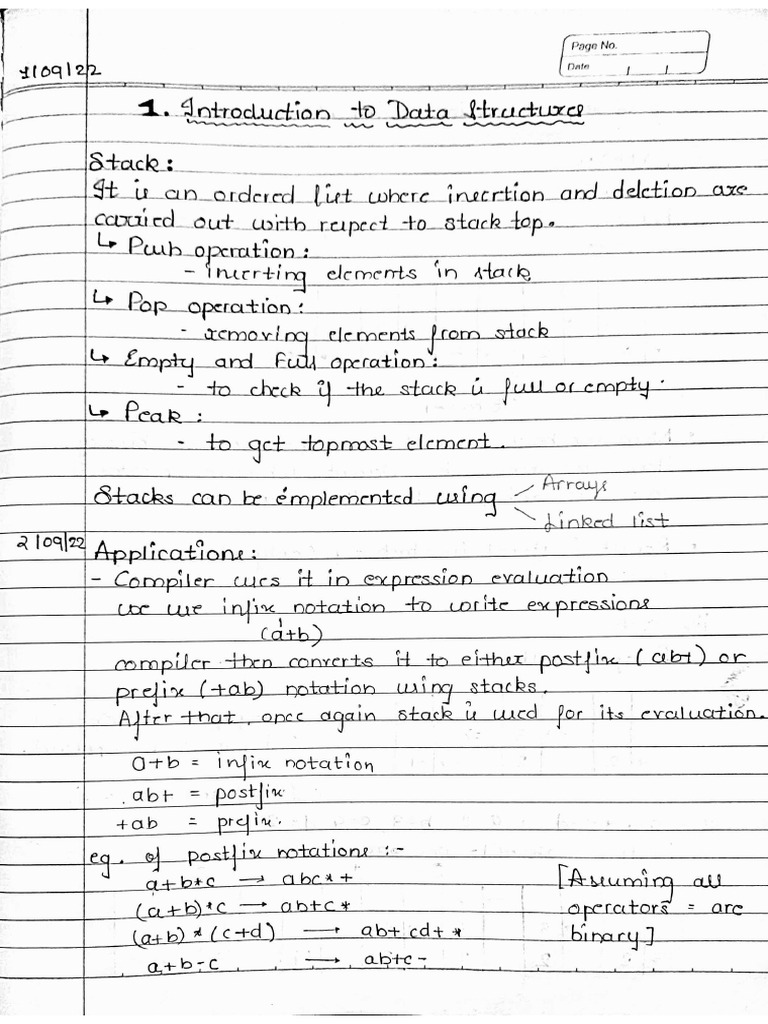 Page No.
Date
1/09/22
1. Introduction to Data Structures
Stack:
It is an ordered list where insertion and deletion are
carried out with respect to stack top.
↳ Push operation:
- inserting elements in stack
↳ Pop operation:
- removing elements from stack
↳ Empty and full operation:
- to check if the stack is full or empty.
↳ Peak:
- to get topmost element.
Stacks can be implemented using Arrays
Linked list
2/09/22 Applications:
- Compiler uses it in expression evaluation
we use infix notation to write expressions
(a+b)
compiler then converts it to either postfix (ab+) or
prefix (+ab) notation using stacks.
After that, once again stack is used for its evaluation.
a+b = infix notation
ab+ = postfix
+ab = prefix.
eg. of postfix notations :-
a+b*c → abc*+ [Assuming all
(a+b)*c → ab+c* operators = are
(a+b)*(c+d) → ab+cd+* binary]
a+b-c → ab+c-